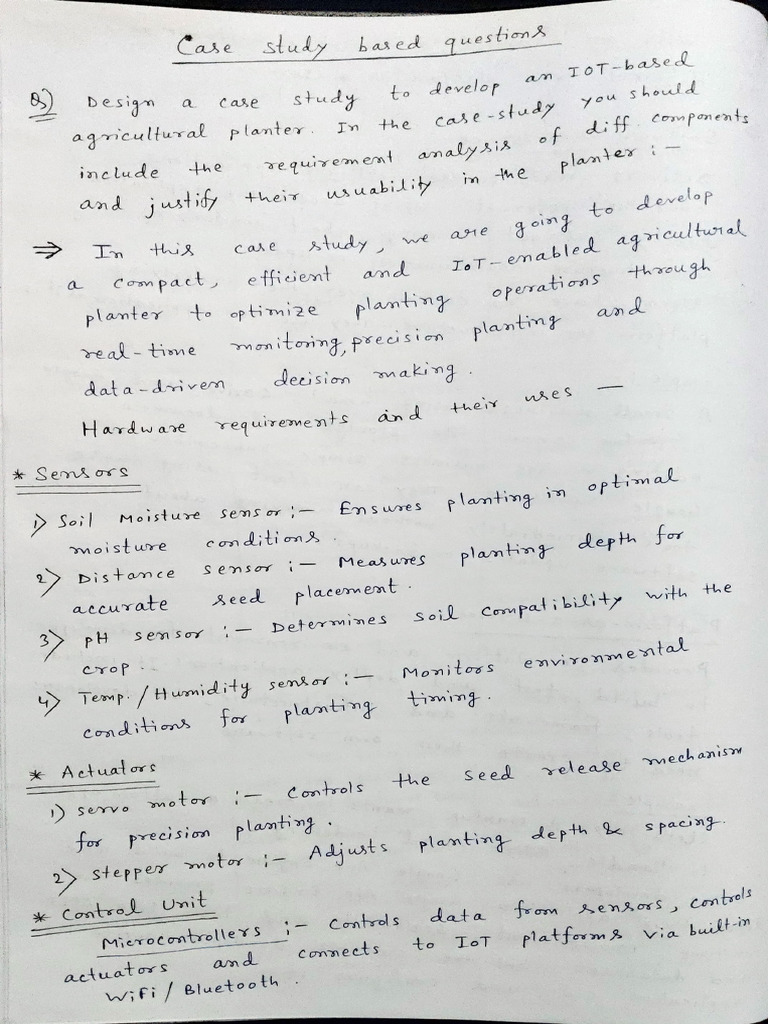 Case study based questions
Q) Design a case study to develop an IOT-based
agricultural planter. In the case-study you should
include the requirement analysis of diff. components
and justify their usuability in the planter :-
⇒ In this case study, we are going to develop
a compact, efficient and IoT-enabled agricultural
planter to optimize planting operations through
real-time monitoring, precision planting and
data-driven decision making.
Hardware requirements and their uses —
* Sensors
1) Soil Moisture sensor :- Ensures planting in optimal
moisture conditions.
2) Distance sensor :- Measures planting depth for
accurate seed placement.
3) pH sensor :- Determines soil compatibility with the
crop.
4) Temp. / Humidity sensor :- Monitors environmental
conditions for planting timing.
* Actuators
1) servo motor :- Controls the seed release mechanism
for precision planting.
2) stepper motor :- Adjusts planting depth & spacing.
* Control Unit
Microcontrollers :- Controls data from sensors, controls
actuators and connects to IoT platforms via built-in
WiFi / Bluetooth.